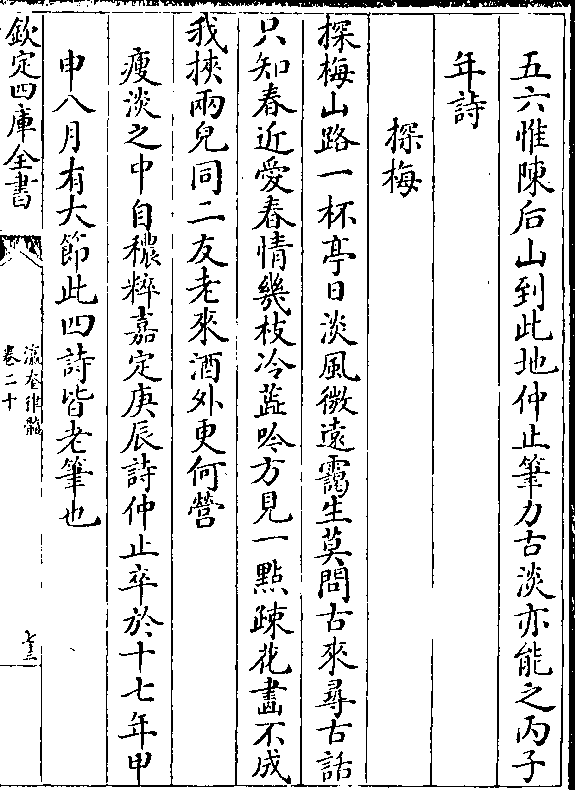 五六惟陳后山到此地仲止筆力古淡亦能之丙子
年詩
探梅
探梅山路一杯亭日淡風微遠靄生莫問古來尋古話
只知春近愛春情幾枝冷蘂吟方見一點疎花畫不成
我挾兩兒同二友老來酒外更何營
瘦淡之中自穠粹嘉定庚辰詩仲止卒於十七年甲
申八月有大節此四詩皆老筆也
欽定四庫全書
瀛奎律髓
卷二十